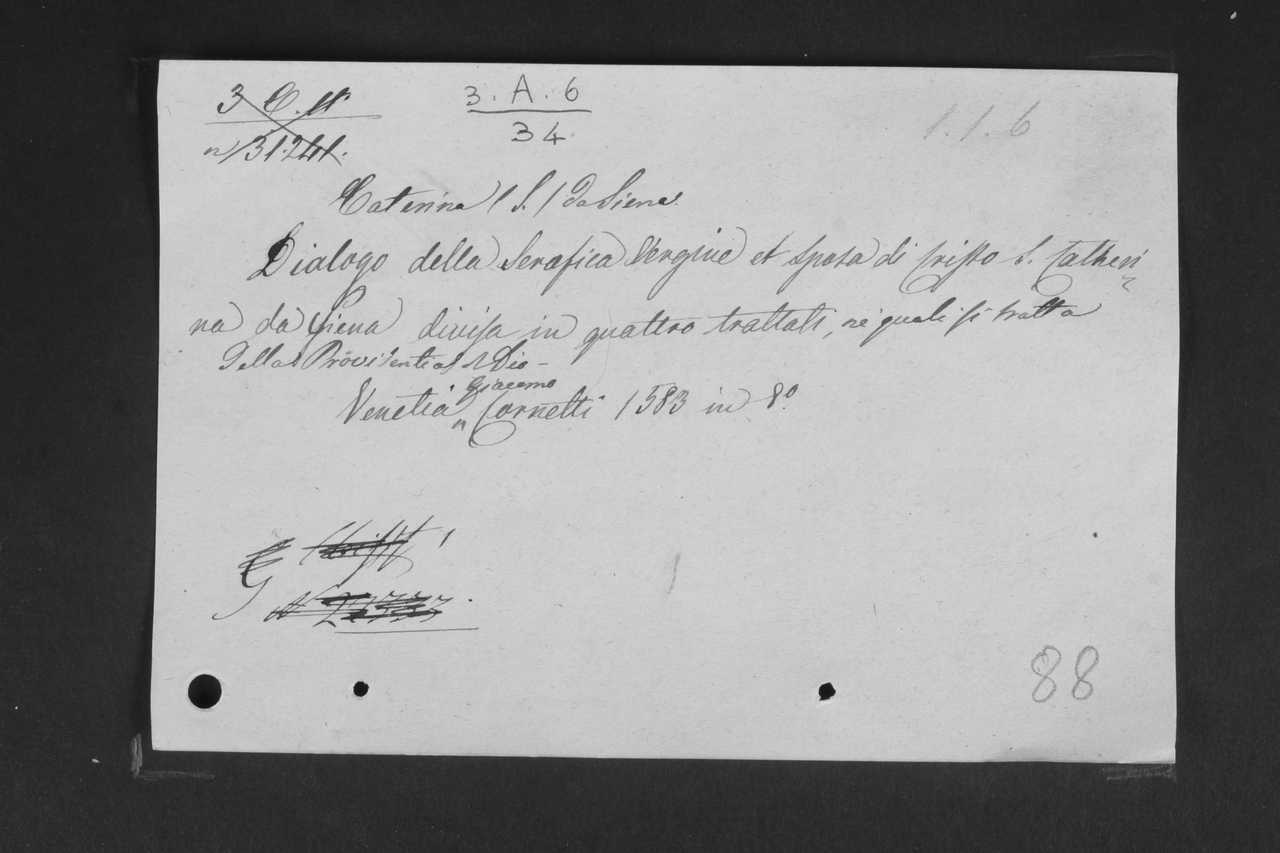 3. A. 6
34.
1.1.6
n° 31.241.
Caterina (S.) da Siena.
Dialogo della Serafica Vergine et sposa di Cristo S. Catheri
na da Siena divisa in quattro trattati, ne quali si tratta
della Providentia di Dio –
Giacomo
Venetia, Cornetti 1583 in 8°.
88